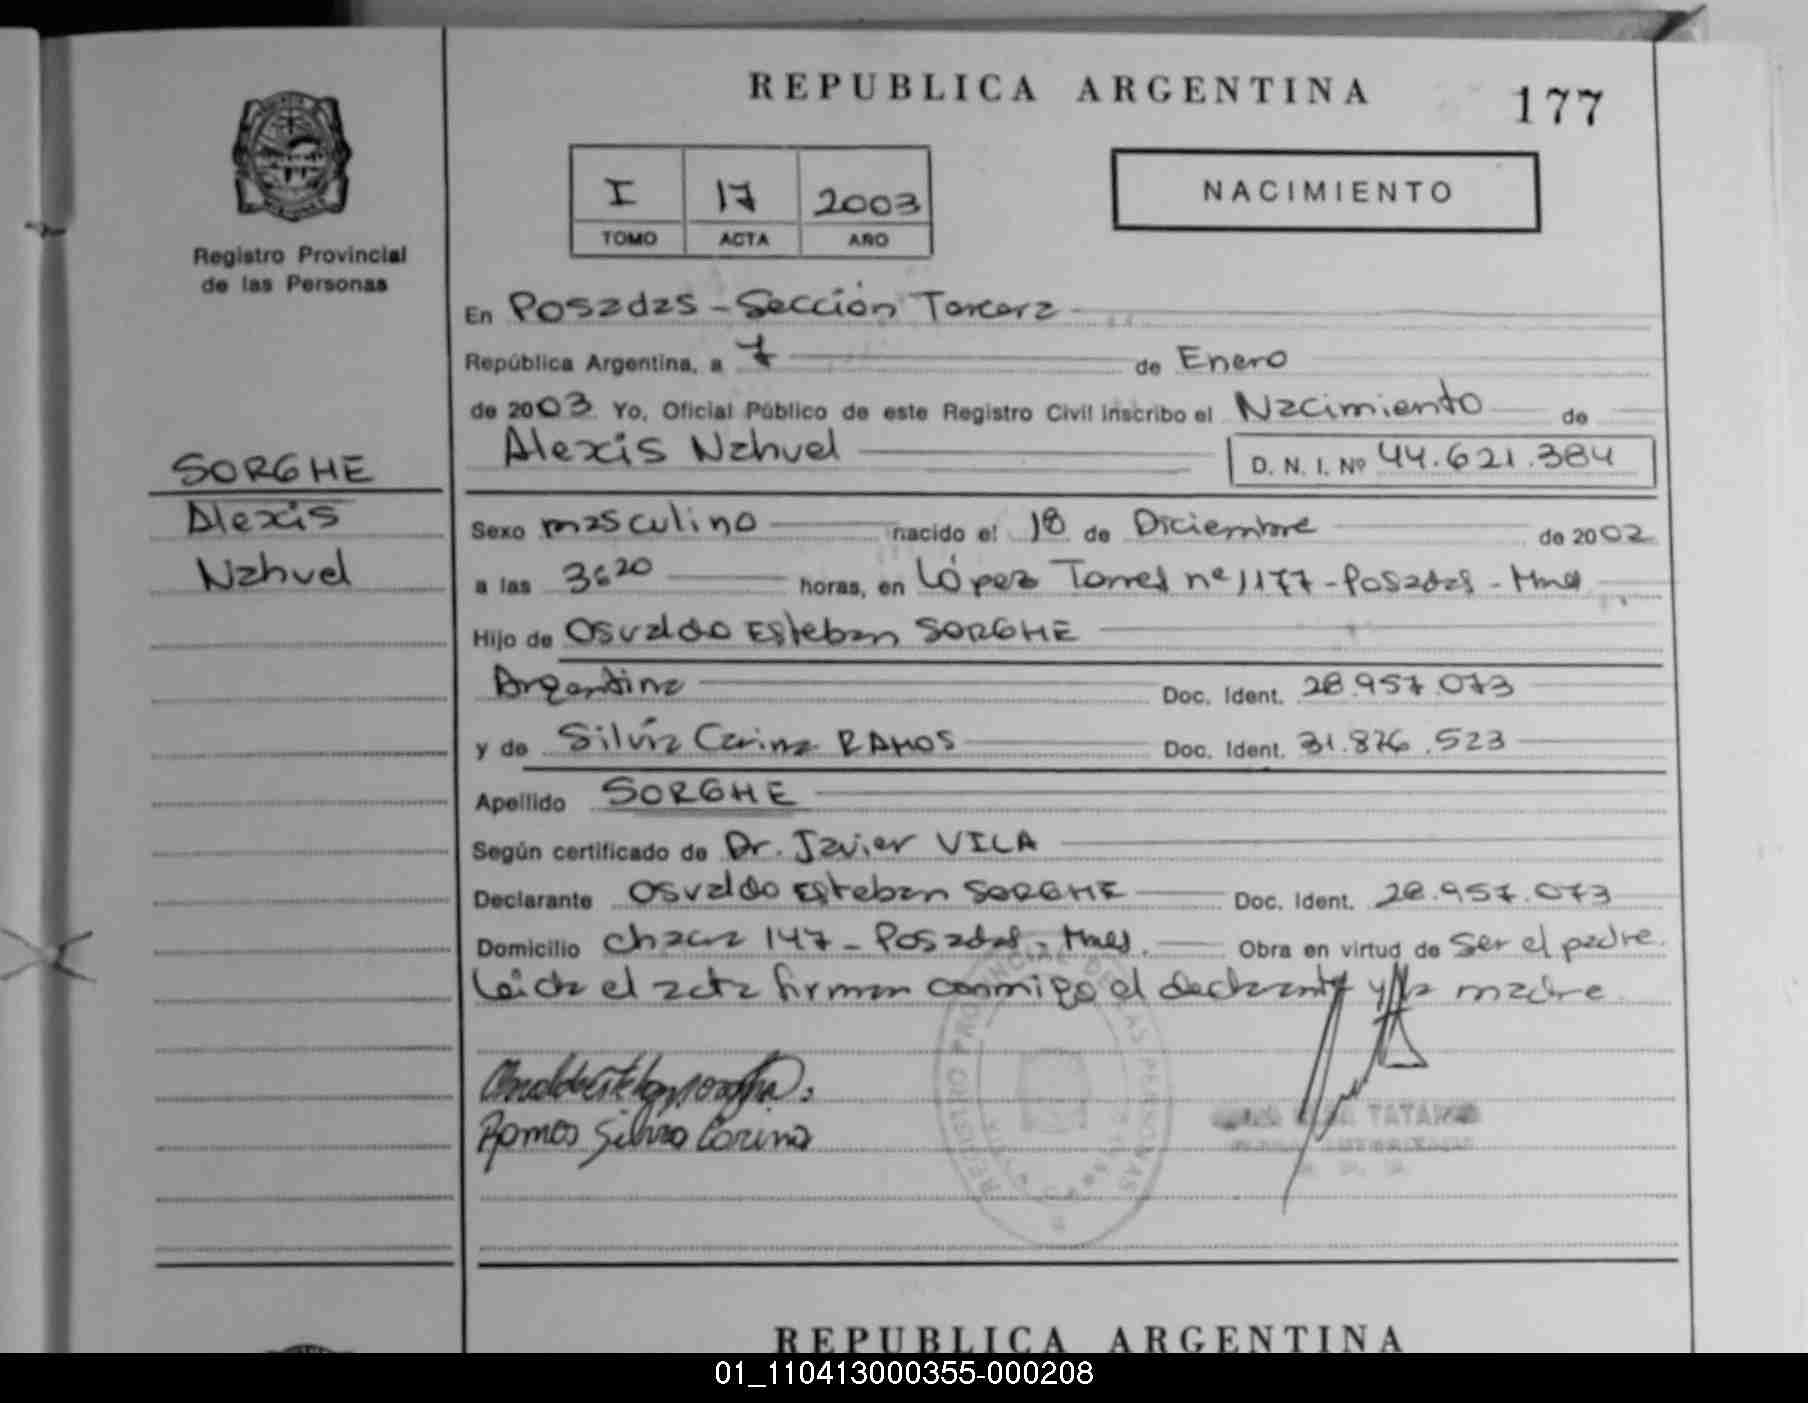 REPUBLICA ARGENTINA
177
I 17 2003
TOMO ACTA AÑO
NACIMIENTO
Registro Provincial
de las Personas
En Posadas - Sección Tercera
República Argentina, a 7 de Enero
de 2003 Yo, Oficial Público de este Registro Civil inscribo el Nacimiento de
Alexis Nahuel D. N. I. Nº 44.621.384
SORGHE
Alexis
Nahuel
Sexo masculino nacido el 18 de Diciembre de 2002
a las 3:20 horas, en López Torres nº 1177 - Posadas - Mnes
Hijo de Osvaldo Esteban SORGHE
Argentina Doc. Ident. 28.957.073
y de Silvia Carina RAMOS Doc. Ident. 31.876.523
Apellido SORGHE
Según certificado de Dr. Javier VILA
Declarante Osvaldo Esteban SORGHE Doc. Ident. 28.957.073
Domicilio chacra 147 - Posadas - Mnes. Obra en virtud de ser el padre.
Leída el acta firman conmigo el declarante y la madre.
Ramos Silvia Carina
REGISTRO PROVINCIAL DE LAS PERSONAS
REPUBLICA ARGENTINA
01_110413000355-000208